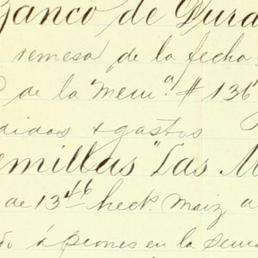 Banco de Dura
remesa de la fecha
de la "Mem.a" # 136
didas + gastos
emillas "Las M
de 13 46 heck. Maiz a
do á peones en la Sema